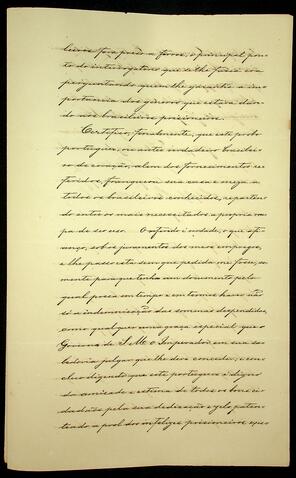 beiros fora preso a ferros, o principal pon-
to do interrogatorio que se lhe fazia era
perguntando quem lhe garantia a im-
portancia dos generos que estava dan-
do aos brasileiros prisioneiros.
Certifico, finalmente, que este probo
portuguez, ou antes verdadeiro brasilei-
ro de coração, alem dos fornecimentos re-
feridos, franqueou sua casa e meza a
todos os brasileiros conhecidos, reparten-
do entre os mais necessitados a propria rou-
pa de seo uso. O referido é verdade, o que afi-
anço, sobre juramentos dos meos empregos,
e lhe passo esta sem que pedida me fosse, so-
mente para que tenha um documento pelo
qual possa em tempo e em termos haver não
só a indemnisação das sommas despendidas,
como qualquer uma graça especial que o
Governo de S. M. o Imperador em sua sa-
bedoria julgar que lhe deva conceder; e con-
cluo dizendo que este portuguez é digno
da amizade e estima de todos os brasi-
leiros pela sua dedicação e zelo paten-
teado a prol dos infelizes prisioneiros, que o